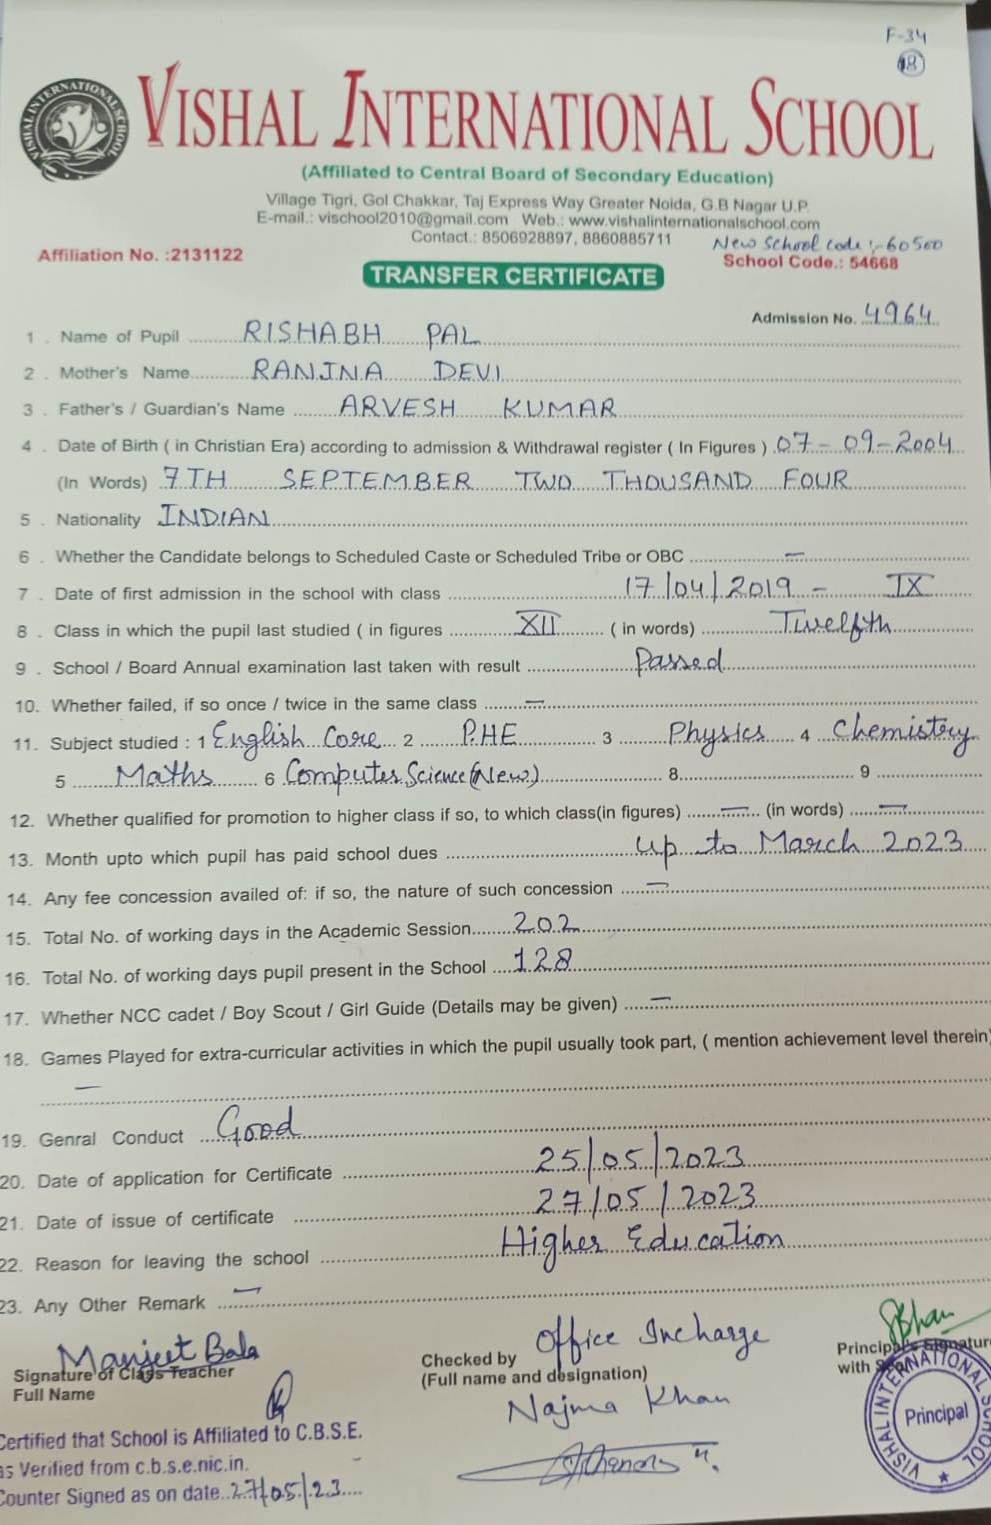 F-34
18
VISHAL INTERNATIONAL SCHOOL
(Affiliated to Central Board of Secondary Education)
Village Tigri, Gol Chakkar, Taj Express Way Greater Noida, G.B Nagar U.P.
E-mail.: vischool2010@gmail.com Web.: www.vishalinternationalschool.com
Contact.: 8506928897, 8860885711
New School Code :- 60500
Affiliation No. :2131122
TRANSFER CERTIFICATE
School Code.: 54668
Admission No. 4964
1 . Name of Pupil RISHABH PAL
2 . Mother's Name RANJNA DEVI
3 . Father's / Guardian's Name ARVESH KUMAR
4 . Date of Birth ( in Christian Era) according to admission & Withdrawal register ( In Figures ) 07-09-2004
(In Words) 7TH SEPTEMBER TWO THOUSAND FOUR
5 . Nationality INDIAN
6 . Whether the Candidate belongs to Scheduled Caste or Scheduled Tribe or OBC –
7 . Date of first admission in the school with class 17/04/2019 - IX
8 . Class in which the pupil last studied ( in figures XII ( in words) Twelfth
9 . School / Board Annual examination last taken with result Passed
10. Whether failed, if so once / twice in the same class –
11. Subject studied : 1 English Core 2 PHE 3 Physics 4 Chemistry
5 Maths 6 Computer Science (New) 8 9
12. Whether qualified for promotion to higher class if so, to which class(in figures) – (in words) –
13. Month upto which pupil has paid school dues up to March 2023
14. Any fee concession availed of: if so, the nature of such concession –
15. Total No. of working days in the Academic Session 202
16. Total No. of working days pupil present in the School 128
17. Whether NCC cadet / Boy Scout / Girl Guide (Details may be given) –
18. Games Played for extra-curricular activities in which the pupil usually took part, ( mention achievement level therein)
–
19. Genral Conduct Good
20. Date of application for Certificate 25/05/2023
21. Date of issue of certificate 27/05/2023
22. Reason for leaving the school Higher Education
23. Any Other Remark –
Manjeet Bala
Signature of Class Teacher
Full Name
Checked by Office Incharge
(Full name and designation)
Najma Khan
Principal's Signature
with
VISHAL INTERNATIONAL SCHOOL
Principal
Certified that School is Affiliated to C.B.S.E.
as Verified from c.b.s.e.nic.in.
Counter Signed as on date 27/05/23